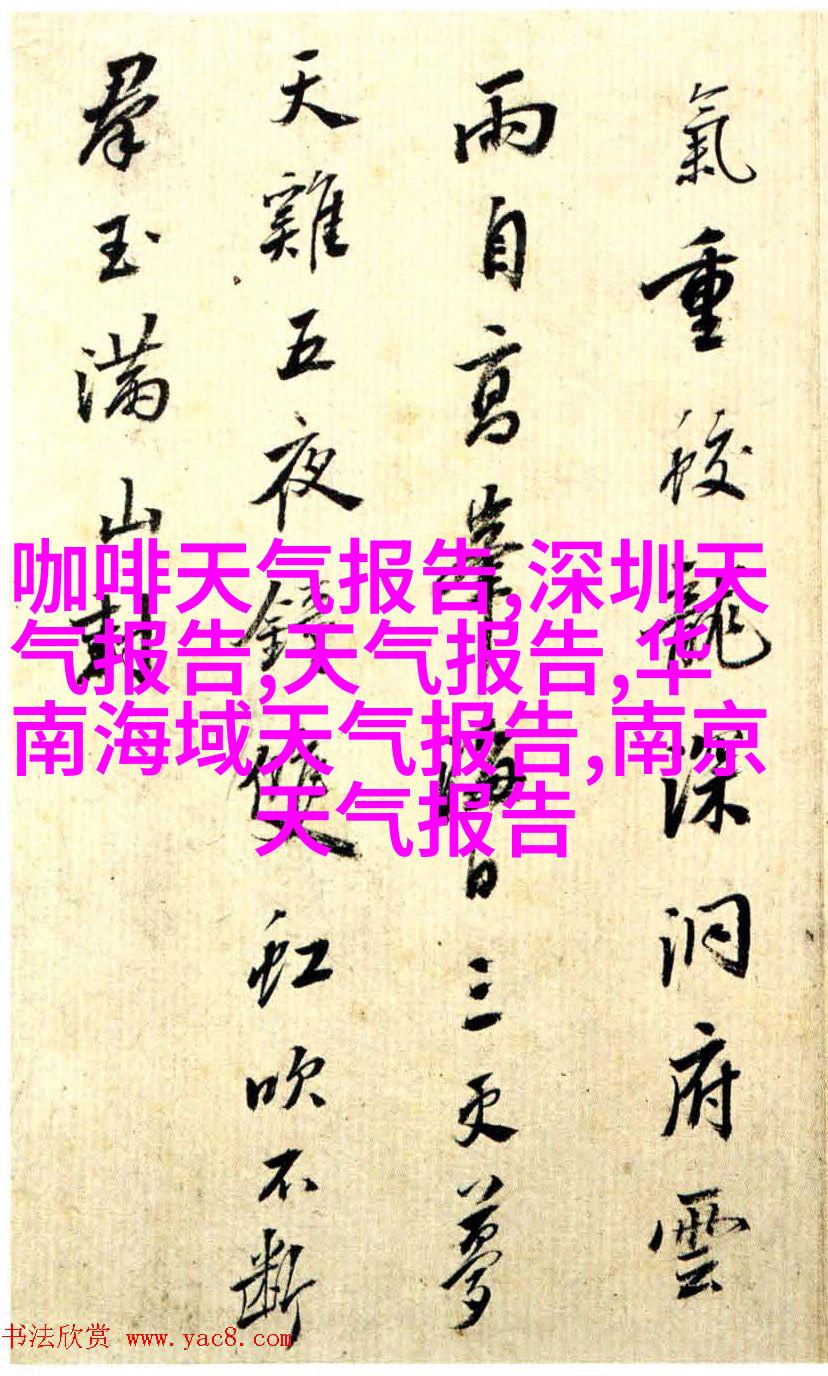 氣重蛟龍深洞府雲
雨自高峯海日三更夢
天雞五夜鐘雙虹吹不斷
羣玉滿山
咖啡天气报告,深圳天
气报告,天气报告,华
南海域天气报告,南京
天气报告
书法欣赏 www.yac8.com